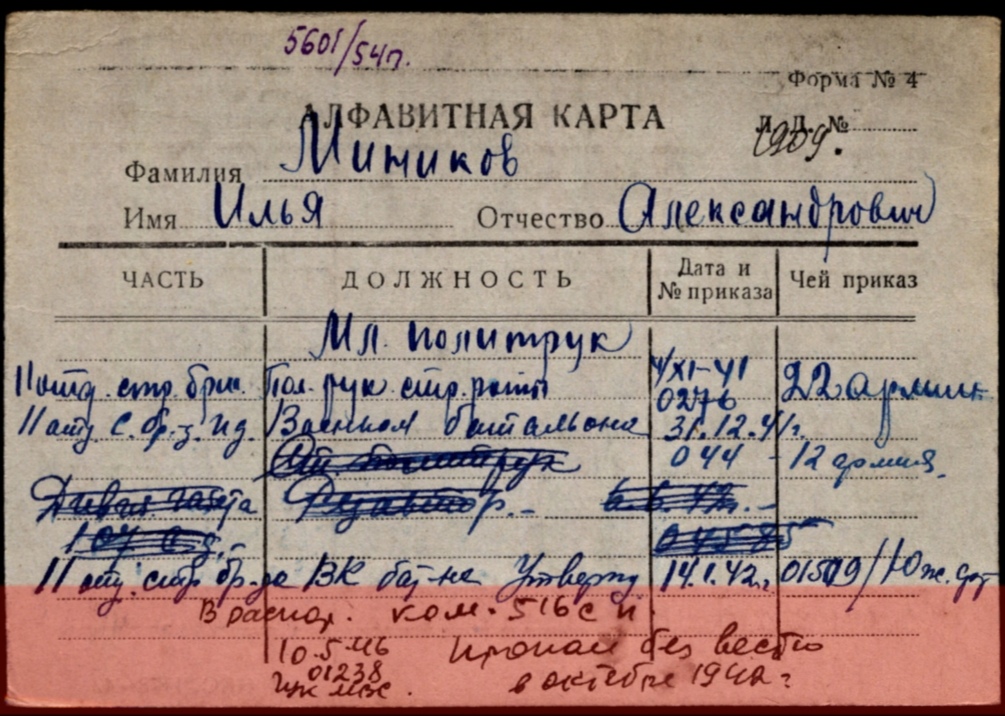 5601/54п.
Форма № 4
АЛФАВИТНАЯ КАРТА
Л. Д. №
1909.
Фамилия Миников
Имя Илья Отчество Александрович
ЧАСТЬ ДОЛЖНОСТЬ Дата и № приказа Чей приказ
Мл. политрук
11 отд. стр. бриг. Пол. рук. стр. роты 4/XI-41 0276 22 армии
11 отд. с. бр. Военком батальона 31.12.41г. 044 - 12 армия
Ст. политрук
11 отд. стр. бр-да ВК бат-на Утвержд. 14.1.42г. /Юж. фр
В распор. ком. 516 с п.
10.5.46 01238 гук мвс. пропал без вести
в октябре 1942 г